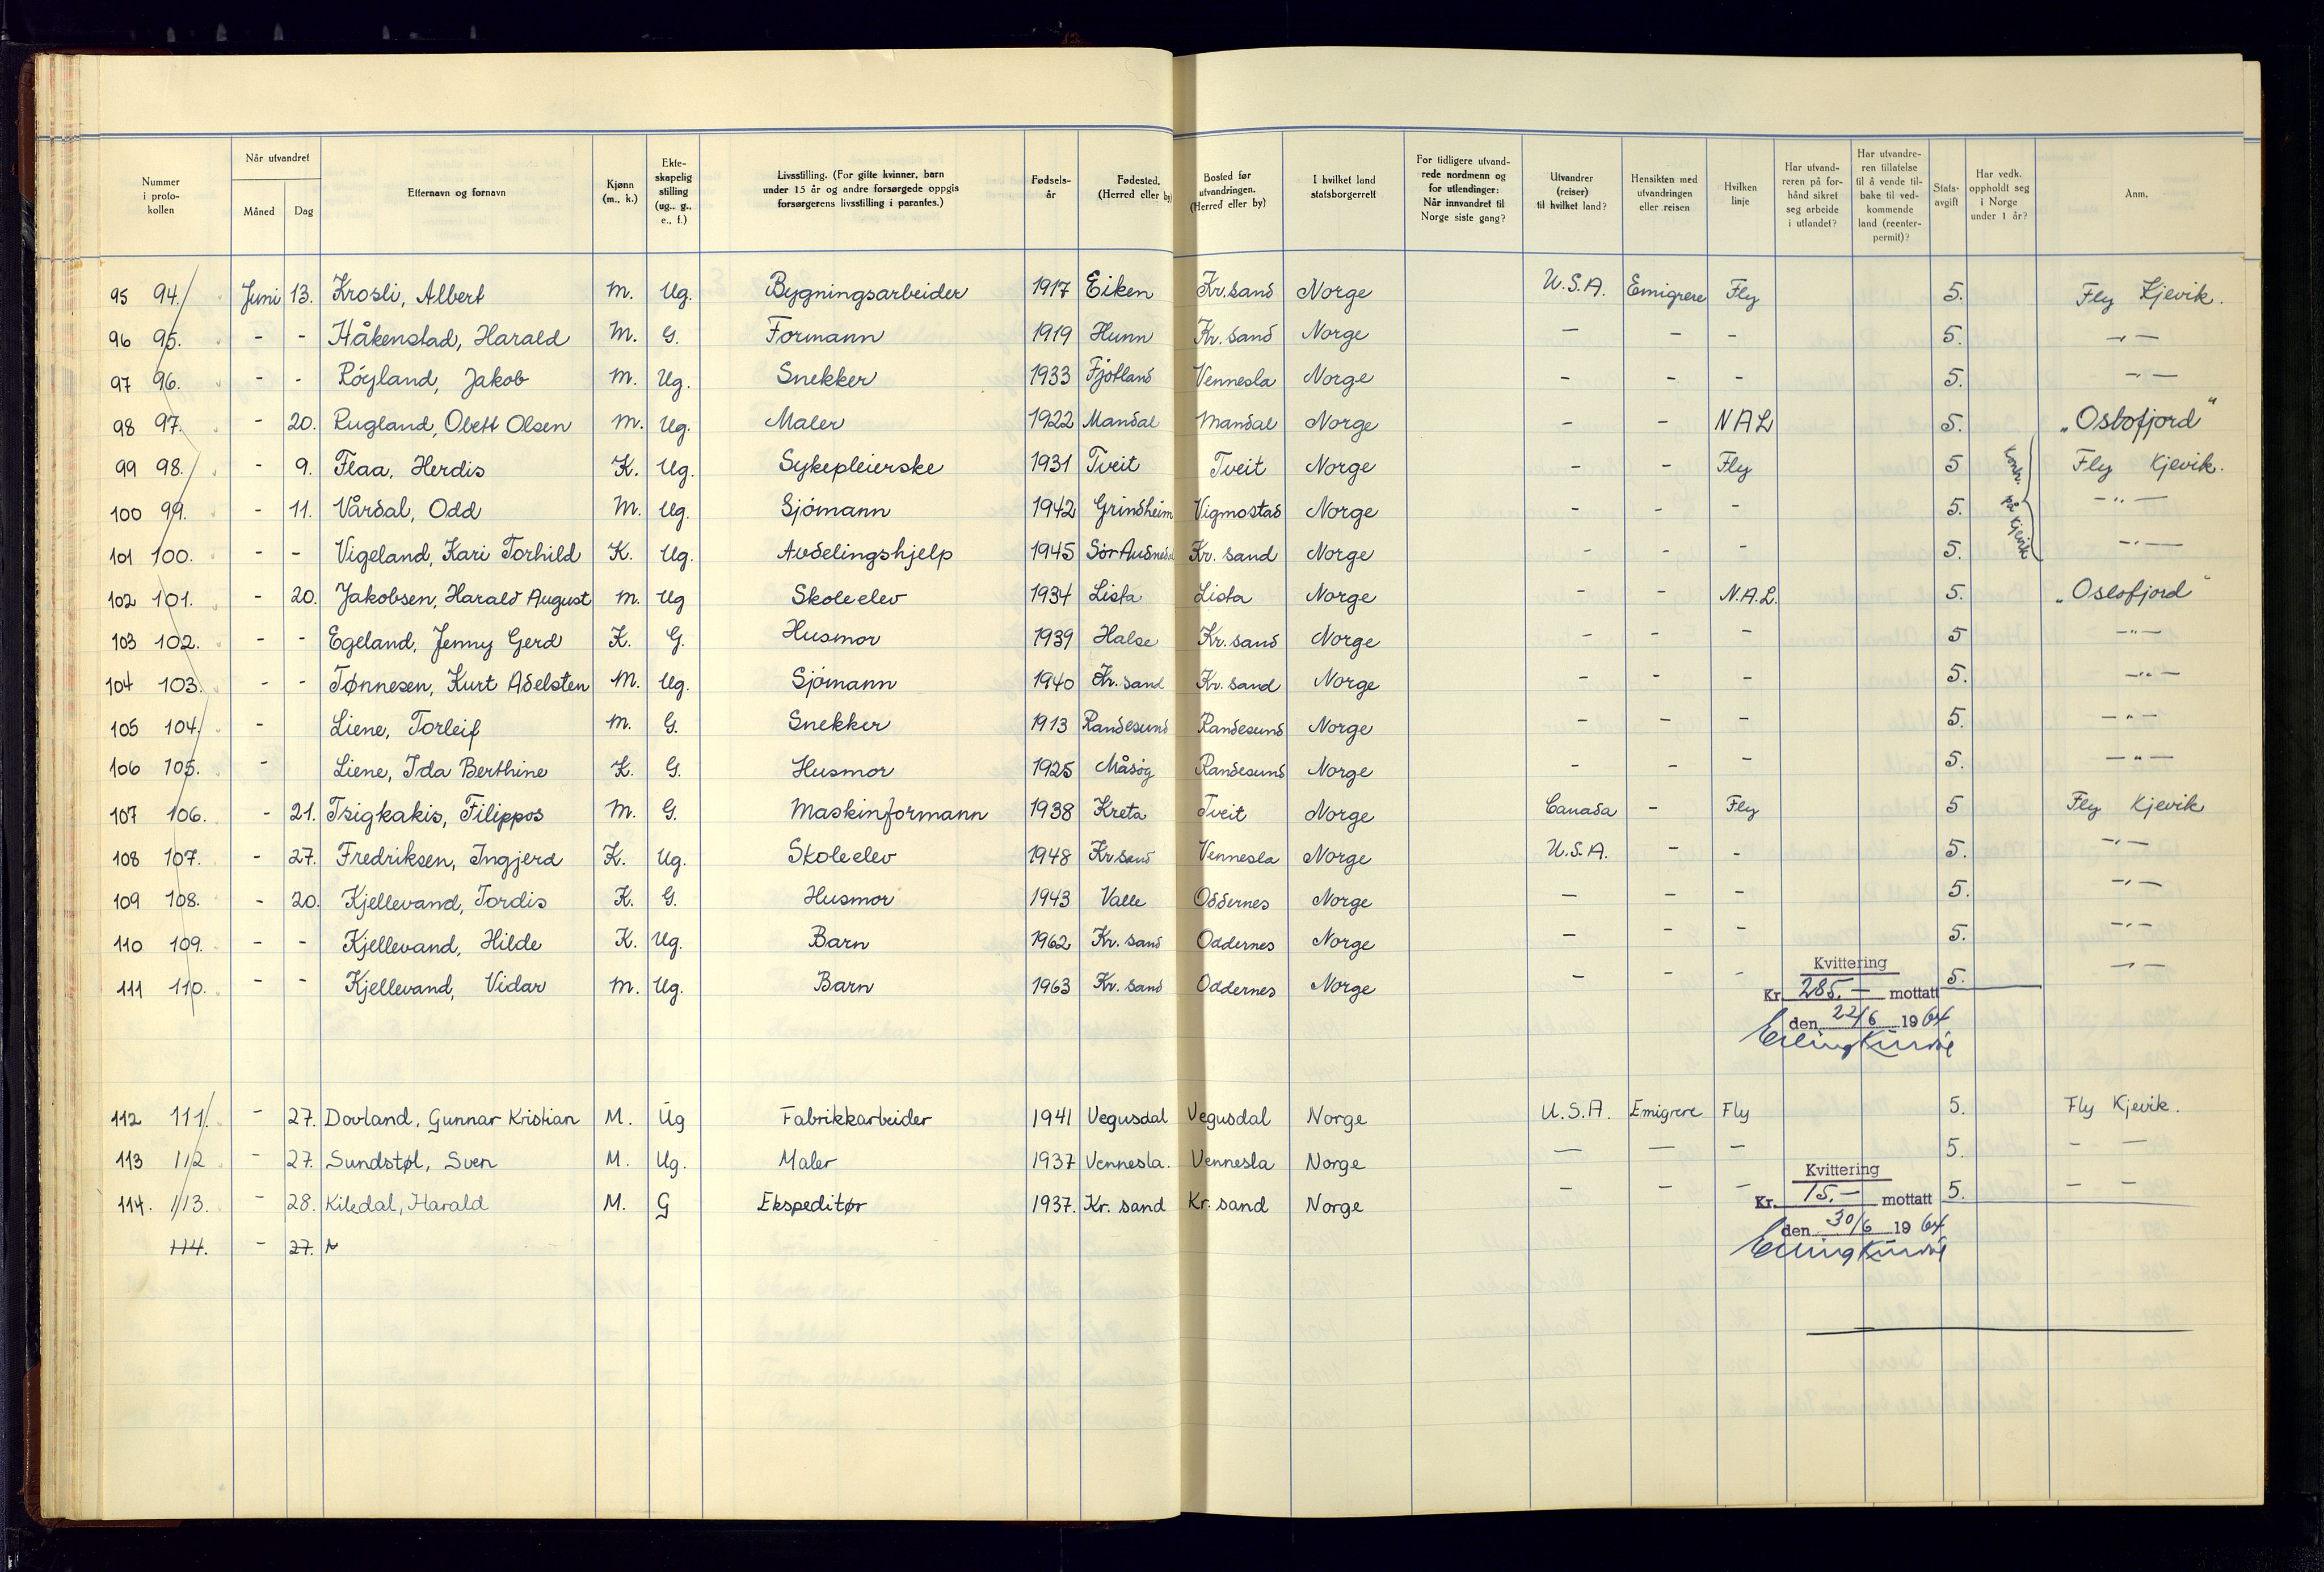 Nummer i protokollen | Når utvandret Måned | Dag | Etternavn og fornavn | Kjønn (m., k.) | Ekteskapelig stilling (ug., g., e., f.) | Livsstilling. (For gifte kvinner, barn under 15 år og andre forsørgede oppgis forsørgerens livsstilling i parantes.) | Fødselsår | Fødested. (Herred eller by) | Bosted før utvandringen. (Herred eller by) | I hvilket land statsborgerrett | For tidligere utvandrede nordmenn og for utlendinger: Når innvandret til Norge siste gang? | Utvandrer (reiser) til hvilket land? | Hensikten med utvandringen eller reisen | Hvilken linje | Har utvandreren på forhånd sikret seg arbeide i utlandet? | Har utvandreren tillatelse til å vende tilbake til vedkommende land (reenterpermit)? | Statsavgift | Har vedk. oppholdt seg i Norge under 1 år? | Anm.
95 94. Juni 13. Krosli, Albert M. Ug. Bygningsarbeider 1917 Eiken Kr.sand Norge U.S.A. Emigrere Fly 5. Fly Kjevik.
96 95. - - Håkenstad, Harald M. G. Formann 1919 Hunn Kr. sand Norge — - - 5. —"—
97 96. - - Röyland, Jakob M. Ug. Snekker 1933 Fjotland Vennesla Norge - - - 5. —"—
98 97. - 20. Rugland, Obett Olsen M. Ug. Maler 1922 Mandal Mandal Norge - - NAL 5. "Oslofjord"
99 98. - 9. Flaa, Herdis K. Ug. Sykepleierske 1931 Tveit Tveit Norge - - Fly 5 Fly Kjevik.
100 99. - 11. Vårdal, Odd M. Ug. Sjömann 1942 Grindheim Vigmostad Norge - - - 5. —"—
101 100. - - Vigeland, Kari Torhild K. Ug. Avdelingshjelp 1945 Sör Audnedal Kr. sand Norge - - - 5. —"—
Kontr. på Kjevik
102 101. - 20. Jakobsen, Harald August M. Ug Skoleelev 1934 Lista Lista Norge - - N.A.L. 5. "Oslofjord"
103 102. - - Egeland, Jenny Gerd K. G. Husmor 1939 Halse Kr.sand Norge - - - 5 —"—
104 103. - - Tønnesen, Kurt Adelsten M. Ug. Sjömann 1940 Kr. sand Kr. sand Norge - - - 5. —"—
105 104. - Liene, Torleif M. G. Snekker 1913 Randesund Randesund Norge - - - 5. —"—
106 105. - Liene, Ida Berthine K. G. Husmor 1925 Måsøy Randesund Norge - - - 5. —"—
107 106. - 21. Tsigkakis, Filippos M. G. Maskinformann 1938 Kreta Tveit Norge Canada - Fly 5 Fly Kjevik
108 107. - 27. Fredriksen, Ingjerd K. Ug. Skoleelev 1948 Kr sand Vennesla Norge U.S.A. - - 5. —"—
109 108. - 20. Kjellevand, Tordis K. G. Husmor 1943 Valle Oddernes Norge — - - 5. —"—
110 109. - - Kjellevand, Hilde K. Ug. Barn 1962 Kr. sand Oddernes Norge - - - 5. —"—
111 110. - - Kjellevand, Vidar M. Ug. Barn 1963 Kr. sand Oddernes Norge - - - 5. —"—
Kvittering
Kr. 285.— mottatt
den 22/6 1964
112 111. - 27. Dovland, Gunnar Kristian M. Ug Fabrikkarbeider 1941 Vegusdal Vegusdal Norge U.S.A. Emigrere Fly 5. Fly Kjevik.
113 112 - 27. Sundstøl, Sven M. Ug. Maler 1937 Vennesla. Vennesla Norge — — - 5. - —
114. 113. - 28. Kiledal, Harald M. G Ekspeditør 1937. Kr. sand Kr. sand Norge - - - 5. — —
Kvittering
Kr. 15.— mottatt
den 30/6 1964
114. - 27.